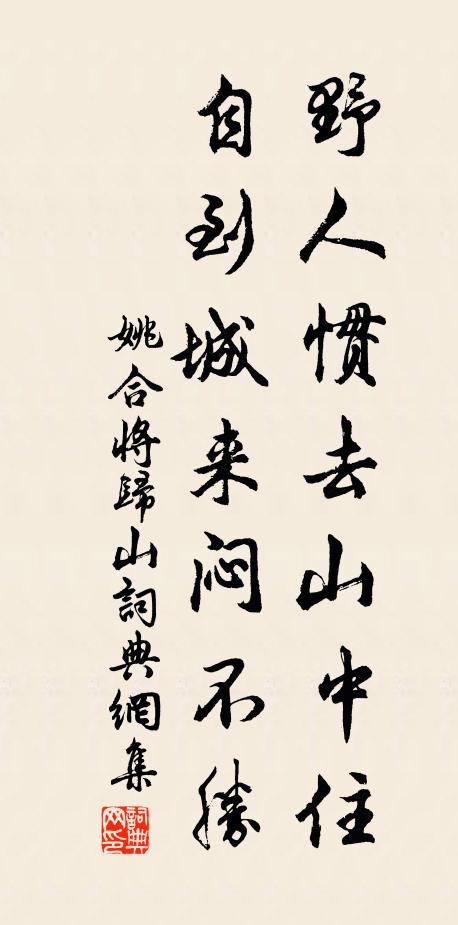 野人慣去山中住
自到城来闷不勝
姚合将歸山詞典網集
詞典网印